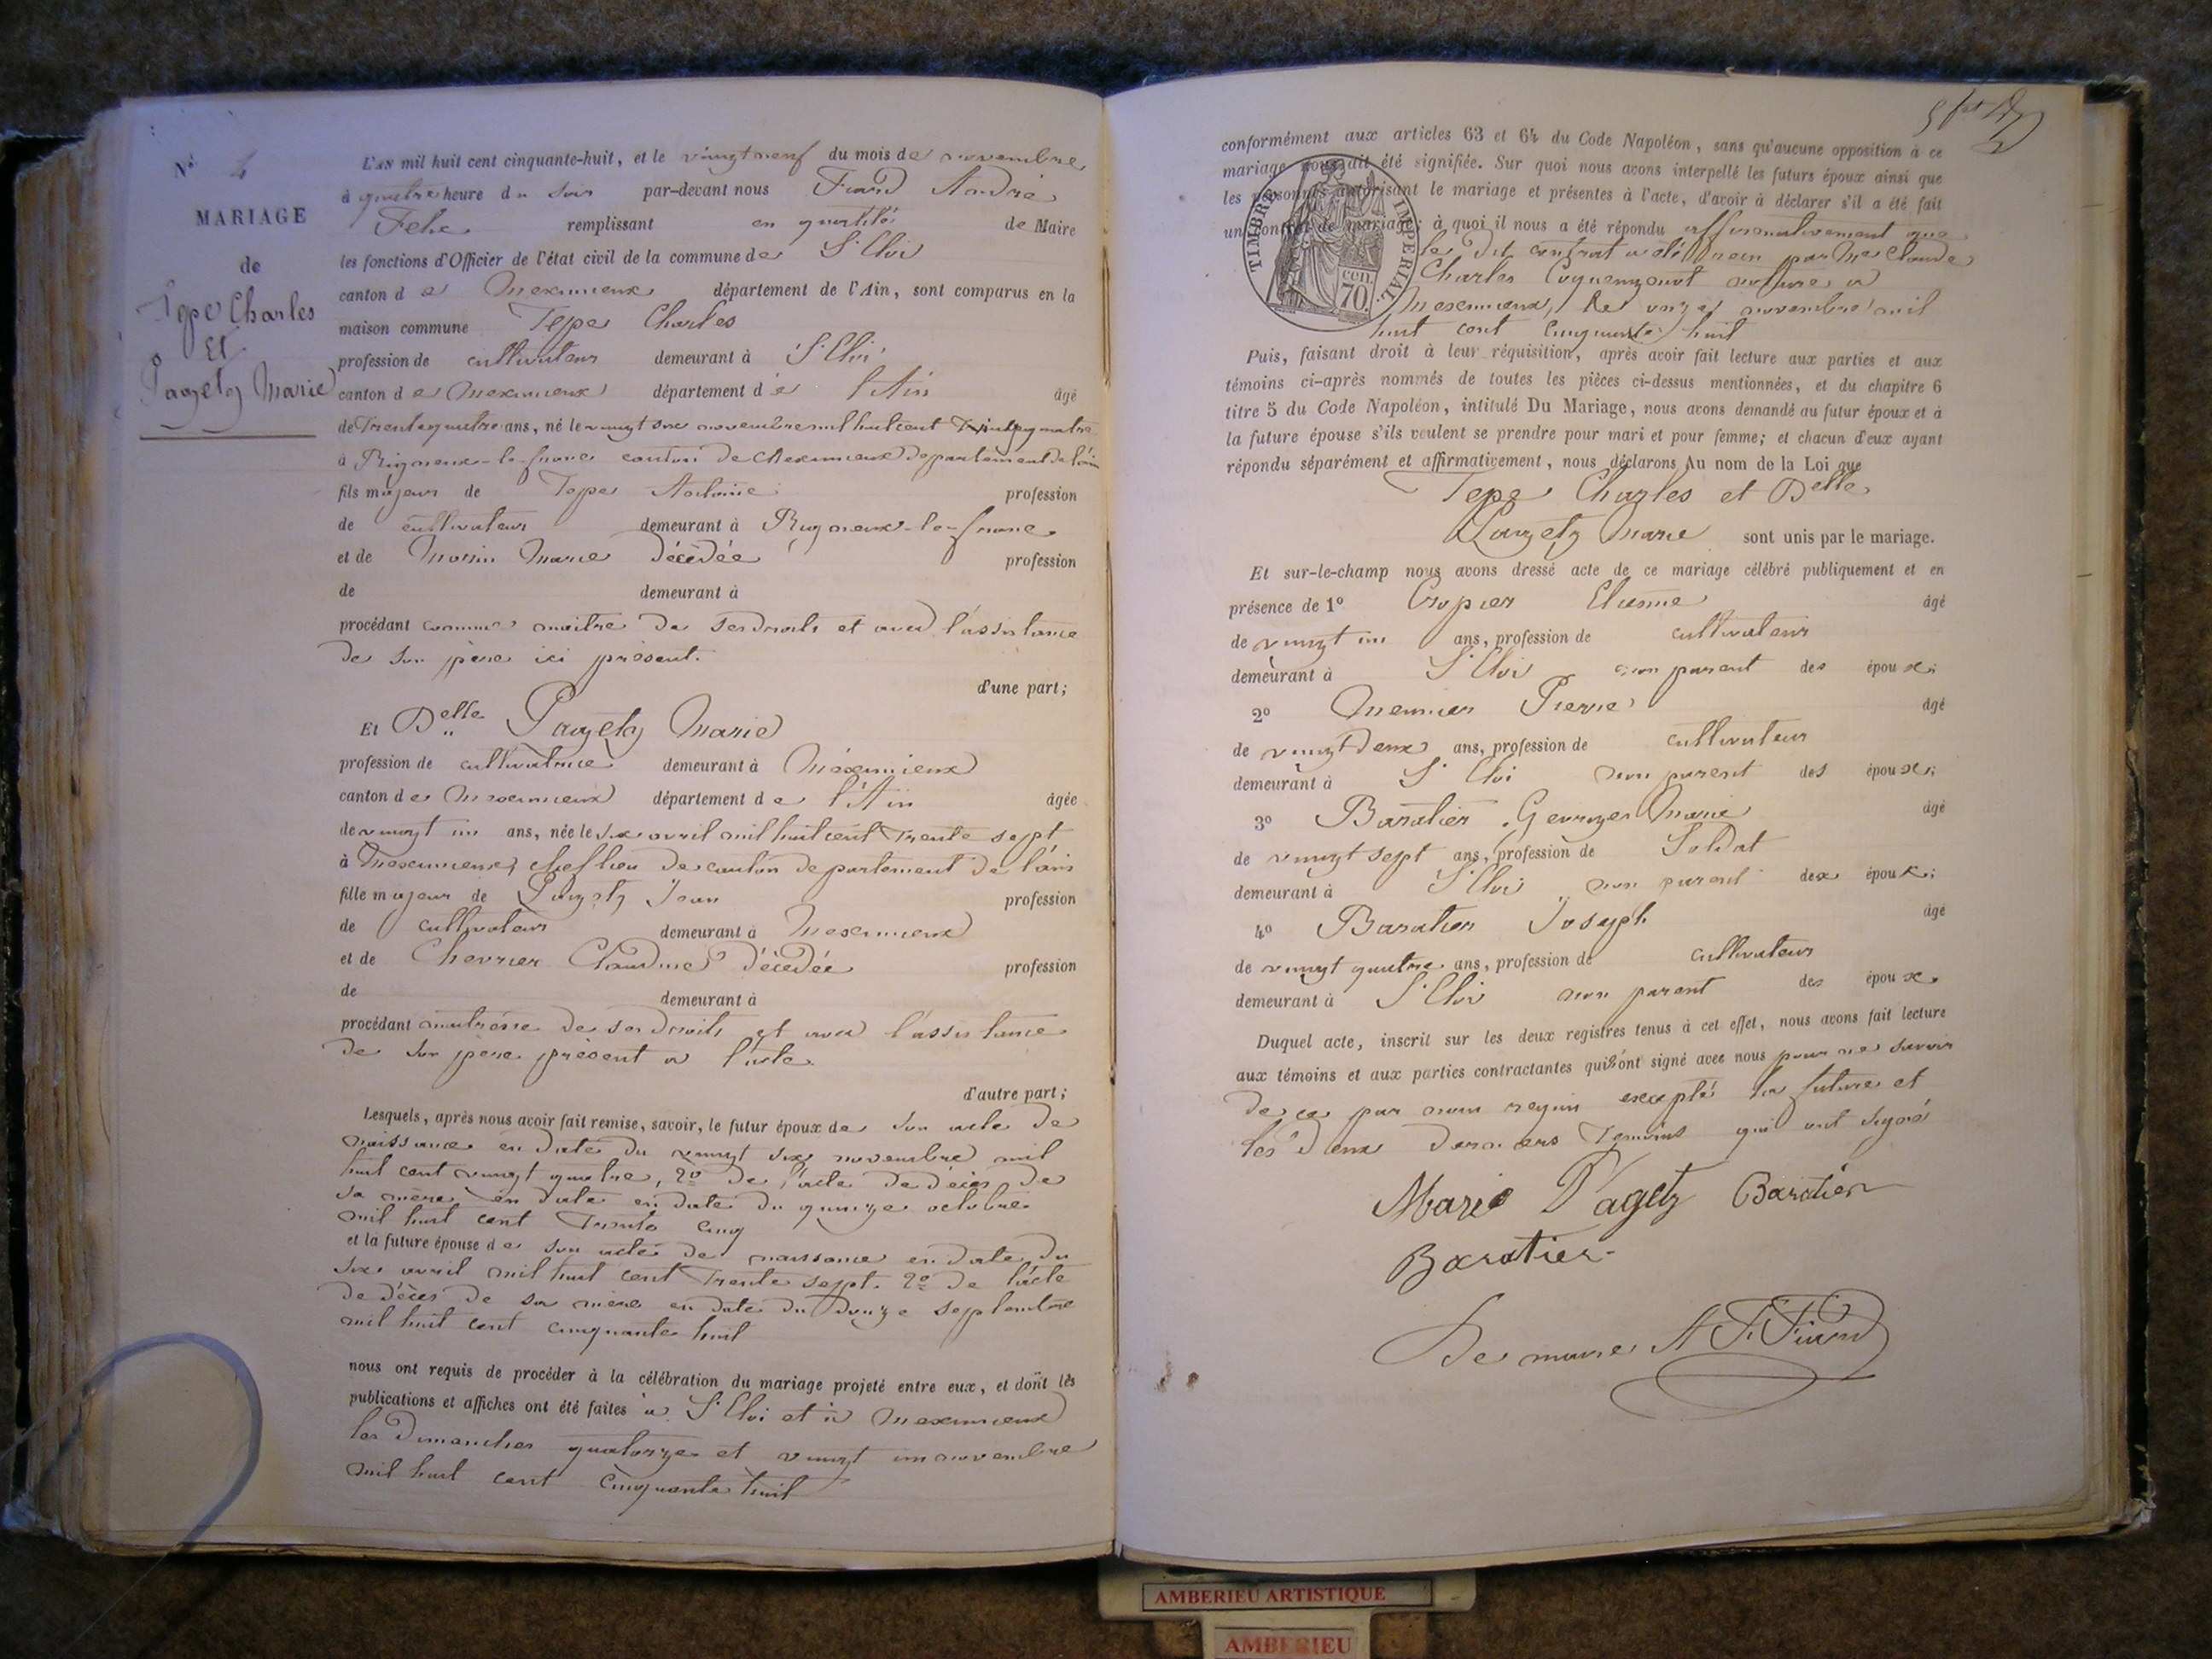 N° 4
MARIAGE
de
Tepe Charles
Et
Pagetz Marie
L'AN mil huit cent cinquante-huit, et le vingt neuf du mois de novembre
à quatre heure du soir par-devant nous Fiard André
Felix remplissant en qualité de Maire
les fonctions d'Officier de l'état civil de la commune de St Eloi
canton de Meximieux département de l'Ain, sont comparus en la
maison commune Tepe Charles
profession de cultivateur demeurant à St Eloi
canton de Meximieux département de l'Ain âgé
de Trente quatre ans, né le vingt six novembre mil huit cent vingt quatre
à Rigneux-le-franc canton de Meximieux département de l'ain
fils majeur de Tepe Antoine profession
de cultivateur demeurant à Rigneux-le-franc
et de Morin Marie décédée profession
de demeurant à
procédant comme maitre de ses droits et avec l'assistance
de son père ici présent.
d'une part;
Et Delle Pagetz Marie
profession de cultivatrice demeurant à Méximieux
canton de Meximieux département de l'Ain âgée
de vingt un ans, née le six avril mil huit cent Trente sept
à Meximieux chef lieu de canton département de l'ain
fille majeur de Pagetz Jean profession
de cultivateur demeurant à Meximieux
et de Chevrier Claudine décédée profession
de demeurant à
procédant maitresse de ses droits et avec l'assistance
de son père présent a l'acte
d'autre part;
Lesquels, après nous avoir fait remise, savoir, le futur époux de son acte de
naissance en date du vingt six novembre mil
huit cent vingt quatre, 2° de l'acte de décès de
sa mère en date en date du quinze octobre
mil huit cent Trente cinq
et la future épouse de son acte de naissance en date du
six avril mil huit cent Trente sept. 2° de l'acte
de décès de sa mère en date du douze septembre
mil huit cent cinquante huit
nous ont requis de procéder à la célébration du mariage projeté entre eux, et dont les
publications et affiches ont été faites à St Eloi et à Meximieux
les Dimanches quatorze et vingt un novembre
mil huit cent cinquante huit
conformément aux articles 63 et 64 du Code Napoléon, sans qu'aucune opposition à ce
mariage nous ait été signifiée. Sur quoi nous avons interpellé les futurs époux ainsi que
les personnes autorisant le mariage et présentes à l'acte, d'avoir à déclarer s'il a été fait
un contrat de mariage; à quoi il nous a été répondu affirmativement que
le dit contrat a été reçu par Me Claude
Charles notaire a
Meximieux, le onze novembre mil
huit cent cinquante huit
TIMBRE IMPERIAL
70 cen
Puis, faisant droit à leur réquisition, après avoir fait lecture aux parties et aux
témoins ci-après nommés de toutes les pièces ci-dessus mentionnées, et du chapitre 6
titre 5 du Code Napoléon, intitulé Du Mariage, nous avons demandé au futur époux et à
la future épouse s'ils veulent se prendre pour mari et pour femme; et chacun d'eux ayant
répondu séparément et affirmativement, nous déclarons Au nom de la Loi que
Tepe Charles et Delle
Pagetz Marie sont unis par le mariage.
Et sur-le-champ nous avons dressé acte de ce mariage célébré publiquement et en
présence de 1° Cropier Etienne âgé
de vingt un ans, profession de cultivateur
demeurant à St Eloi non parent des époux;
2° Meunier Pierre âgé
de vingt deux ans, profession de cultivateur
demeurant à St Eloi non parent des époux;
3° Baratier Marie âgé
de vingt sept ans, profession de Soldat
demeurant à St Eloi non parent des époux;
4° Baratier Joseph âgé
de vingt quatre ans, profession de cultivateur
demeurant à St Eloi non parent des époux.
Duquel acte, inscrit sur les deux registres tenus à cet effet, nous avons fait lecture
aux témoins et aux parties contractantes qui n'ont signé avec nous pour ne savoir
de ce par nous requis excepté la future et
les deux derniers Temoins qui ont signé
Marie Pagetz Baratier
Baratier
Le maire A F Fiard
AMBERIEU ARTISTIQUE
AMBERIEU